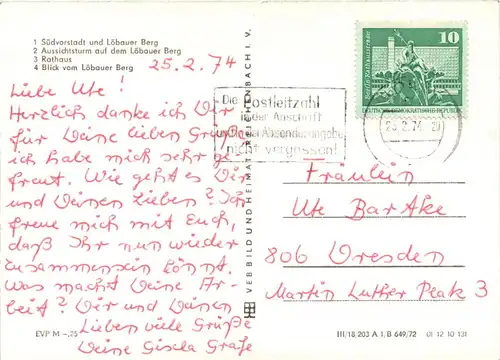 1 Südvorstadt und Löbauer Berg
2 Aussichtsturm auf dem Löbauer Berg
3 Rathaus
4 Blick vom Löbauer Berg
25.2.74
Liebe Ute!
Herzlich danke ich Dir
für Deine lieben Grüße
ich habe mich sehr ge
freut. Wie geht es Dir
und Deinen Lieben? Ich
freue mich mit Euch,
daß Ihr nun wieder
zusammensein könnt.
Was macht Deine Ar-
beit? Dir und Deinen
Lieben viele Grüße
Deine Gisela
EVP M –,25
VEB BILD UND HEIMAT REICHENBACH I. V.
Die Postleitzahl
in der Anschrift
und Absenderangabe
nicht vergessen!
10
DEUTSCHE DEMOKRATISCHE REPUBLIK
25.2.74
Fräulein
Ute Bartke
806 Dresden
Martin Luther Platz 3
III/18,203 A 1, B 649/72 01 12 10 131